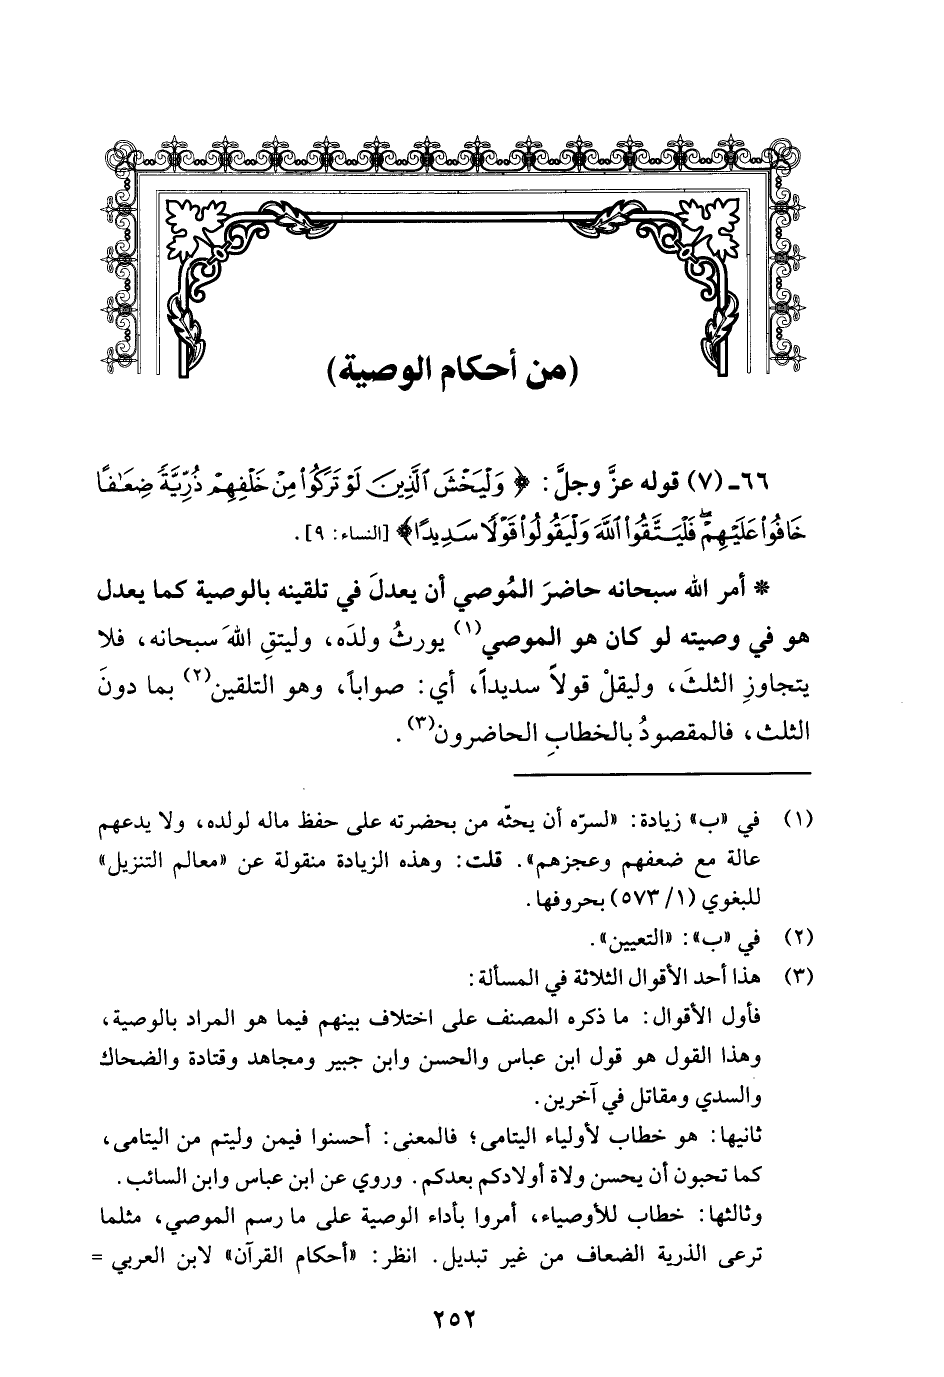 (من أحكام الوصية)
٦٦ـ (٧) قوله عزَّ وجلَّ: ﴿وَلْيَخْشَ ٱلَّذِينَ لَوْ تَرَكُوا۟ مِنْ خَلْفِهِمْ ذُرِّيَّةً ضِعَـٰفًا
خَافُوا۟ عَلَيْهِمْ ۖ فَلْيَتَّقُوا۟ ٱللَّهَ وَلْيَقُولُوا۟ قَوْلًا سَدِيدًا﴾ [النساء: ٩].
* أمر الله سبحانه حاضرَ المُوصي أن يعدلَ في تلقينه بالوصية كما يعدل
هو في وصيته لو كان هو الموصي(١) يورثُ ولدَه، وليتقِ اللهَ سبحانه، فلا
يتجاوزِ الثلثَ، وليقلْ قولاً سديداً، أي: صواباً، وهو التلقين(٢) بما دونَ
الثلث، فالمقصودُ بالخطابِ الحاضرون(٣).
(١) في «ب» زيادة: «لسرّه أن يحثّه من بحضرته على حفظ ماله لولده، ولا يدعهم
عالة مع ضعفهم وعجزهم». قلت: وهذه الزيادة منقولة عن «معالم التنزيل»
للبغوي (١/ ٥٧٣) بحروفها.
(٢) في «ب»: «التعيين».
(٣) هذا أحد الأقوال الثلاثة في المسألة:
فأول الأقوال: ما ذكره المصنف على اختلاف بينهم فيما هو المراد بالوصية،
وهذا القول هو قول ابن عباس والحسن وابن جبير ومجاهد وقتادة والضحاك
والسدي ومقاتل في آخرين.
ثانيها: هو خطاب لأولياء اليتامى؛ فالمعنى: أحسنوا فيمن وليتم من اليتامى،
كما تحبون أن يحسن ولاة أولادكم بعدكم. وروي عن ابن عباس وابن السائب.
وثالثها: خطاب للأوصياء، أمروا بأداء الوصية على ما رسم الموصي، مثلما
ترعى الذرية الضعاف من غير تبديل. انظر: «أحكام القرآن» لابن العربي =
٢٥٢